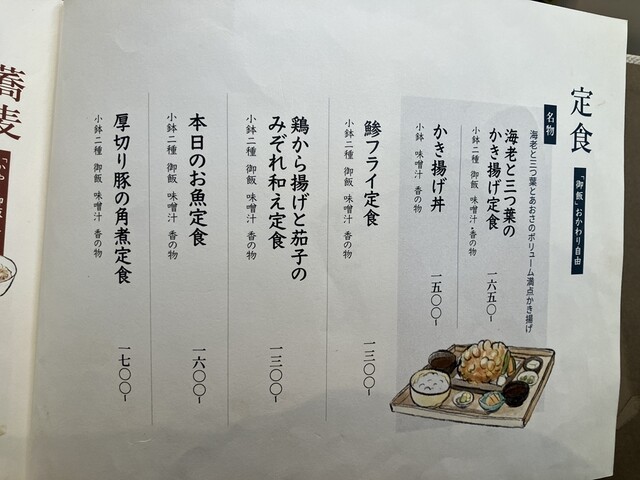 定食
「御飯」おかわり自由
名物
海老と三つ葉とあおさのボリューム満点かき揚げ
海老と三つ葉の
かき揚げ定食
小鉢二種 御飯 味噌汁・香の物
一六五〇-
かき揚げ丼
小鉢 味噌汁 香の物
一五〇〇-
鯵フライ定食
小鉢二種 御飯 味噌汁 香の物
一三〇〇-
鶏から揚げと茄子の
みぞれ和え定食
小鉢二種 御飯 味噌汁 香の物
一三〇〇-
本日のお魚定食
小鉢二種 御飯 味噌汁 香の物
一六〇〇-
厚切り豚の角煮定食
小鉢二種 御飯 味噌汁 香の物
一七〇〇-
蕎麦